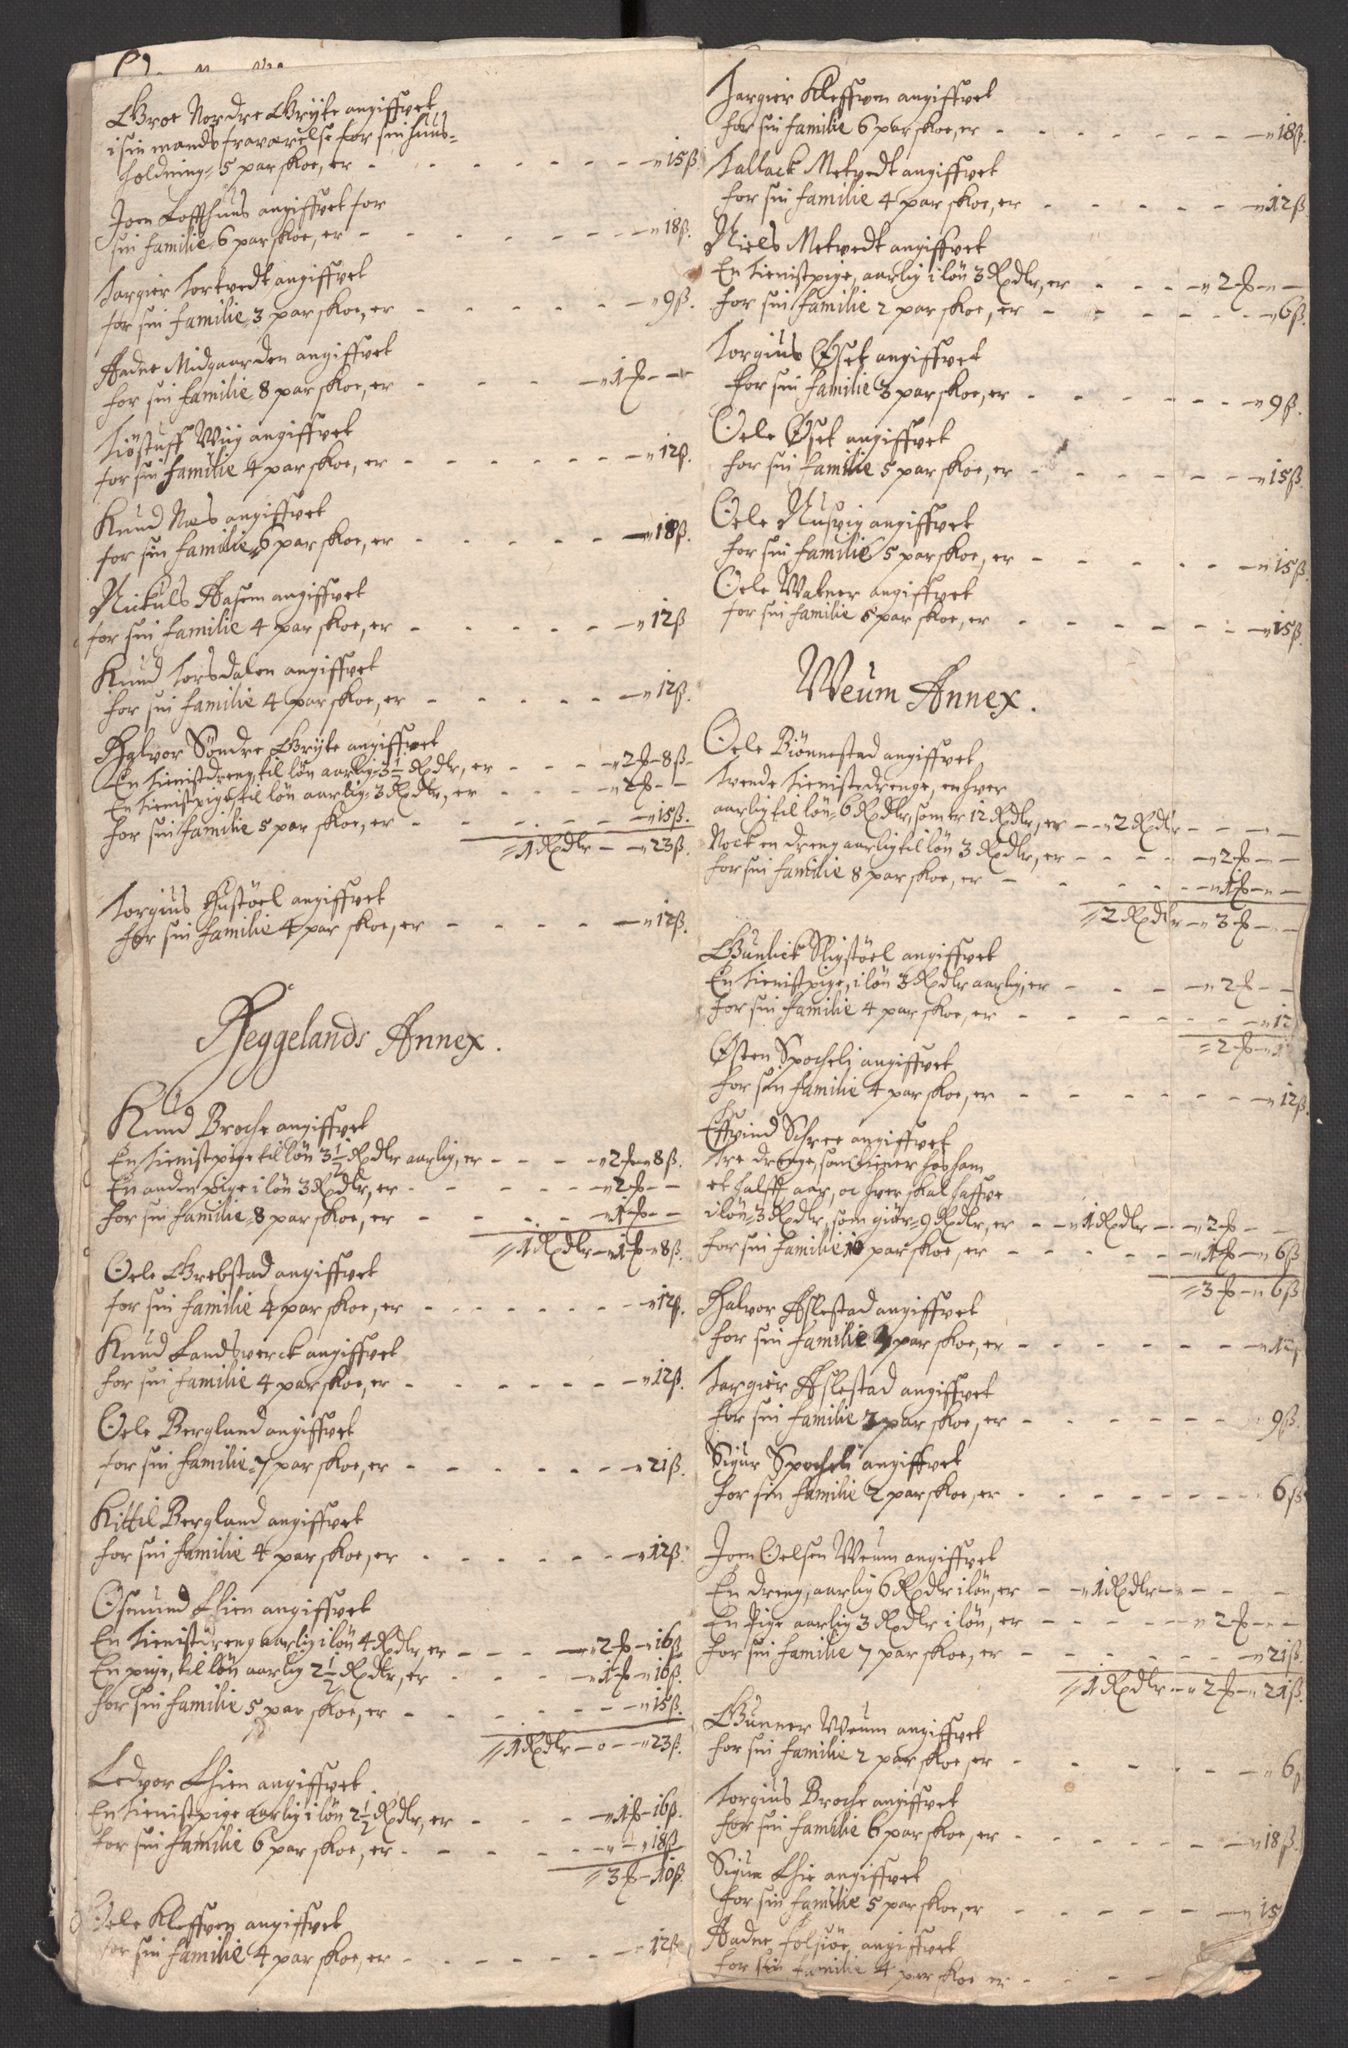 Groe Nordre Gryte angiffvet
i sin mands fraværelse for sin huus-
holdning 5 par skoe, er - - - " 15ß.
Joen Loffthuus angiffvet for
sin familie 6 par skoe, er - - - " 18ß.
Targier Tortvedt angiffvet
for sin familie 3 par skoe, er - - - " 9ß.
Aadne Midgaarden angiffvet
for sin familie 8 par skoe, er - - - " 1 ƒ - -
Tiøstuff Wiig angiffvet
for sin familie 4 par skoe, er - - - " 12ß.
Knud Næs angiffvet
for sin familie 6 par skoe, er - - - " 18ß.
Nickuls Aasem angiffvet
for sin familie 4 par skoe, er - - - " 12ß
Knud Torsdalen angiffvet
for sin familie 4 par skoe, er - - - " 12ß.
Halvor Søndre Gryte angiffvet
En tienistdreng, til løn aarlig 3 1/2 Rdlr, er - - - " 2 ƒ - 8ß -
En tienistpige til løn aarlig 3 Rdlr, er - - - " 2 ƒ - -
for sin familie 5 par skoe, er - - - " 15ß.
1 Rdlr - - " 23ß.
Torgius Hustøel angiffvet
for sin familie 4 par skoe, er - - - " 12ß.
Heggelands Annex.
Knud Broche angiffvet
En tienistpige til løn 3 1/2 Rdlr aarlig, er - - - " 2 ƒ - " 8ß.
En anden pige i løn 3 Rdlr, er - - - " 2 ƒ - -
for sin familie 8 par skoe, er - - - " 1 ƒ - -
1 Rdlr - " 1 ƒ - " 8ß.
Oele Grebstad angiffvet
for sin familie 4 par skoe, er - - - " 12ß.
Knud Landsverck angiffvet
for sin familie 4 par skoe, er - - - " 12ß.
Oele Bergland angiffvet
for sin familie 7 par skoe, er - - - " 21ß.
Kittil Bergland angiffvet
for sin familie 4 par skoe, er - - - " 12ß.
Osmund Lien angiffvet
En tienistdreng aarlig i løn 4 Rdlr, er - - - " 2 ƒ - " 16ß
En pige, til løn aarlig 2 1/2 Rdlr, er - - - " 1 ƒ - " 16ß.
for sin familie 5 par skoe, er - - - " 15ß.
1 Rdlr - o - - " 23ß.
Ledvor Lien angiffvet
En tienistpige aarlig i løn 2 1/2 Rdlr, er - - - " 1 ƒ - 16ß.
for sin familie 6 par skoe, er - - - " - " 18ß
3 ƒ - 10ß
Oele Kleffven angiffvet
for sin familie 4 par skoe, er - - - " 12ß
Targier Kleffven angiffvet
for sin familie 6 par skoe, er - - - " 18ß.
Tallack Metvedt angiffvet
for sin familie 4 par skoe, er - - - " 12ß
Niels Metvedt angiffvet
En tienistpige, aarlig i løn 3 Rdlr, er - - - " 2 ƒ - " -
for sin familie 2 par skoe, er - - - " 6ß.
Torgius Øset angiffvet
for sin familie 3 par skoe, er - - - " 9ß.
Oele Øset angiffvet
for sin familie 5 par skoe, er - - - " 15ß
Oele Nusvig angiffvet
for sin familie 5 par skoe, er - - - " 15ß.
Oele Watner angiffvet
for sin familie 5 par skoe, er - - - " 15ß.
Weum Annex.
Oele Biønnestad angiffvet,
tvende tienistedrenge, enhver
aarlig til løn 6 Rdlr, som er 12 Rdlr, er - - " 2 Rdlr - - " -
Nock en dreng aarlig til løn 3 Rdlr, er - - - " 2 ƒ - " -
for sin familie 8 par skoe, er - - - " 1 ƒ - " -
2 Rdlr - " 3 ƒ - " -
Gunlick Sligstøel angiffvet
En tienistpige, i løn 3 Rdlr aarlig, er - - - " 2 ƒ - -
for sin familie 4 par skoe, er - - - " 12
2 ƒ - " 1
Østen Spocheli angiffvet
for sin familie 4 par skoe, er - - - " 12ß.
Effvind Schree angiffvet
tre drenge, som tiener hos ham
et halfft aar, oc hver skal haffve
i løn 3 Rdlr, som giør 9 Rdlr, er - - " 1 Rdlr - " 2 ƒ - -
for sin familie 10 par skoe, er - - - " 1 ƒ - " 6ß
3 ƒ - " 6ß
Halvor Aslestad angiffvet
for sin familie 4 par skoe, er - - - " 12
Targier Aslestad angiffvet
for sin familie 3 par skoe, er - - - 9ß.
Sigur Spocheli angiffvet
for sin familie 2 par skoe, er - - - 6ß
Joen Oelsen Weum angiffvet
En dreng, aarlig 6 Rdlr i løn, er - - " 1 Rdlr - " - -
En Pige aarlig 3 Rdlr i løn, er - - - " 2 ƒ - " -
for sin familie 7 par skoe, er - - - " 21ß.
1 Rdlr - " 2 ƒ - " 21ß.
Gunner Weum angiffvet
for sin familie 2 par skoe, er - - - " 6
Torgius Broche angiffvet
for sin familie 6 par skoe, er - - - " 18ß.
Sigur Lie angiffvet
for sin familie 5 par skoe, er - - - " 15
Aadne Folsiøe, angiffvet
for sin familie 4 par skoe er - - -